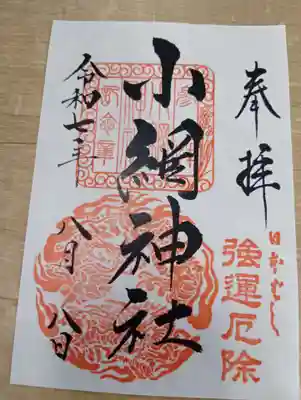 奉拝
日本ばし
強運厄除
小網神社
令和七年
八月八日